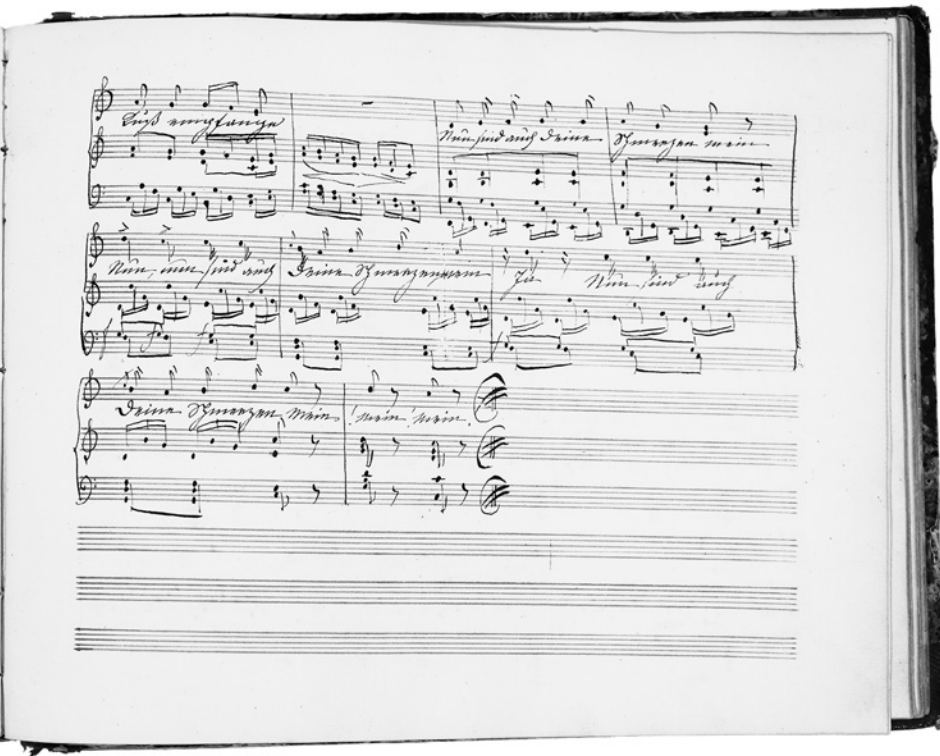 Kuß empfange
Nun sind auch deine Schmerzen mein
Nun, nun sind auch deine Schmerzen mein Ja Nun sind auch
deine Schmerzen mein, mein, mein.